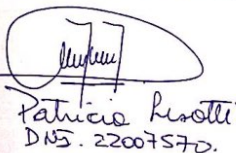 Patricia Lisotti
DNI. 22007570.